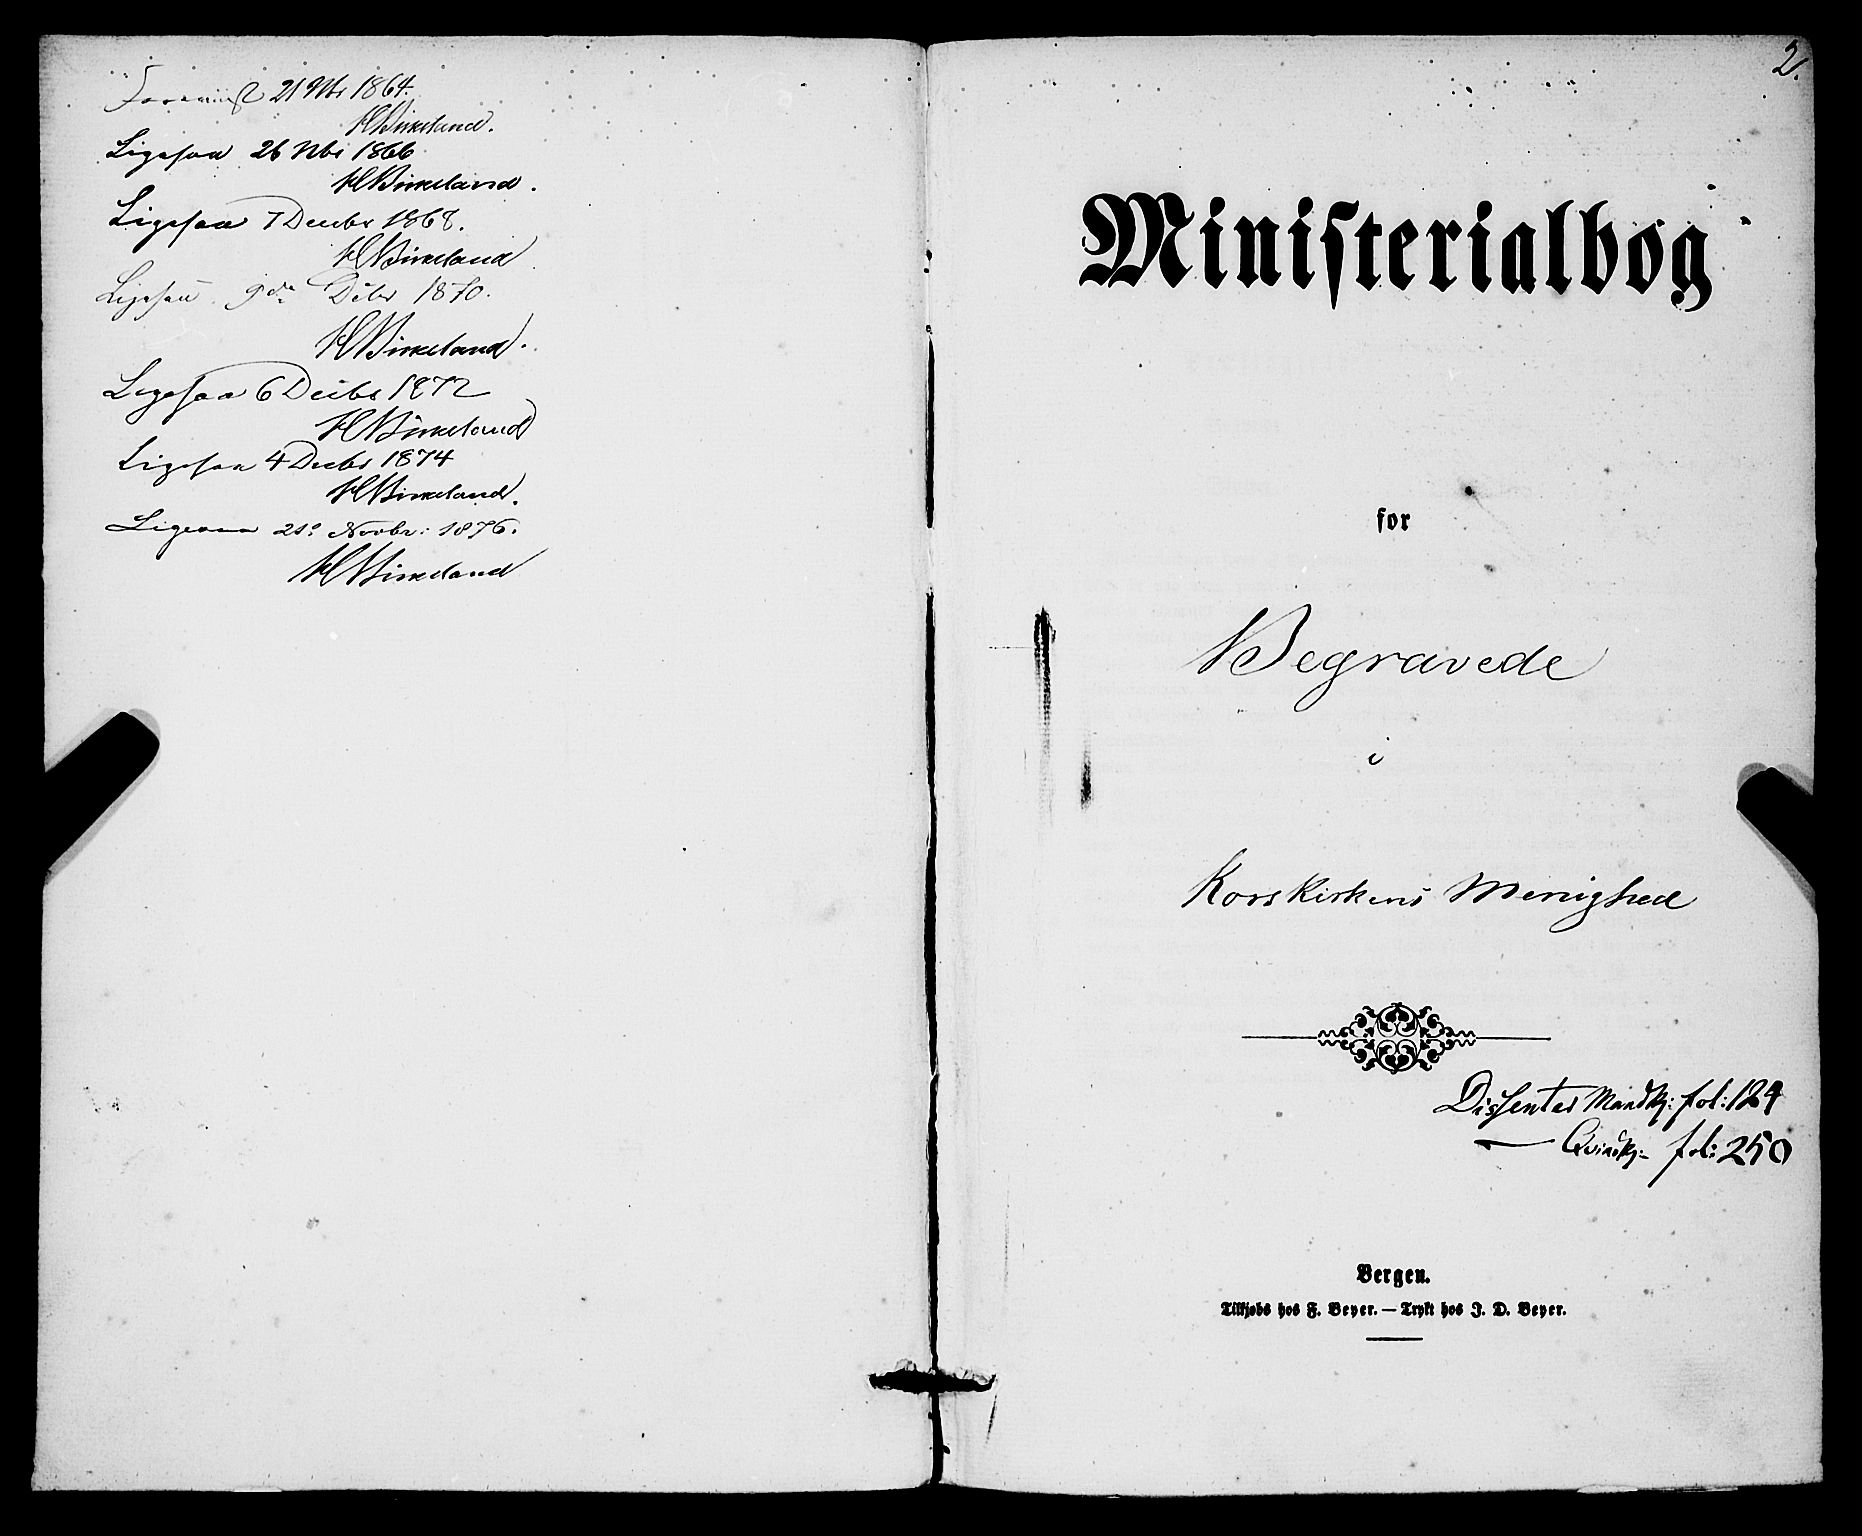 Foreviist 21 Nbr 1864.
HBirkeland.
Ligesaa 26 Nbr 1866
HBirkeland.
Ligesaa 7 Decbr 1868.
HBirkeland
Ligesaa 9de Dcbr 1870.
HBirkeland.
Ligesaa 6 Decbr 1872
HBirkeland
Ligesaa 4 Decbr 1874
HBirkeland.
Ligesaa 21de Novbr: 1876.
HBirkeland
2.
Ministerialbog
for
Begravede
i
Korskirkens Menighed
Dissenter Mandkj: fol: 124
— Qvindkj: fol: 250
Bergen.
Tilkjøbs hos F. Beyer. — Trykt hos J. D. Beyer.